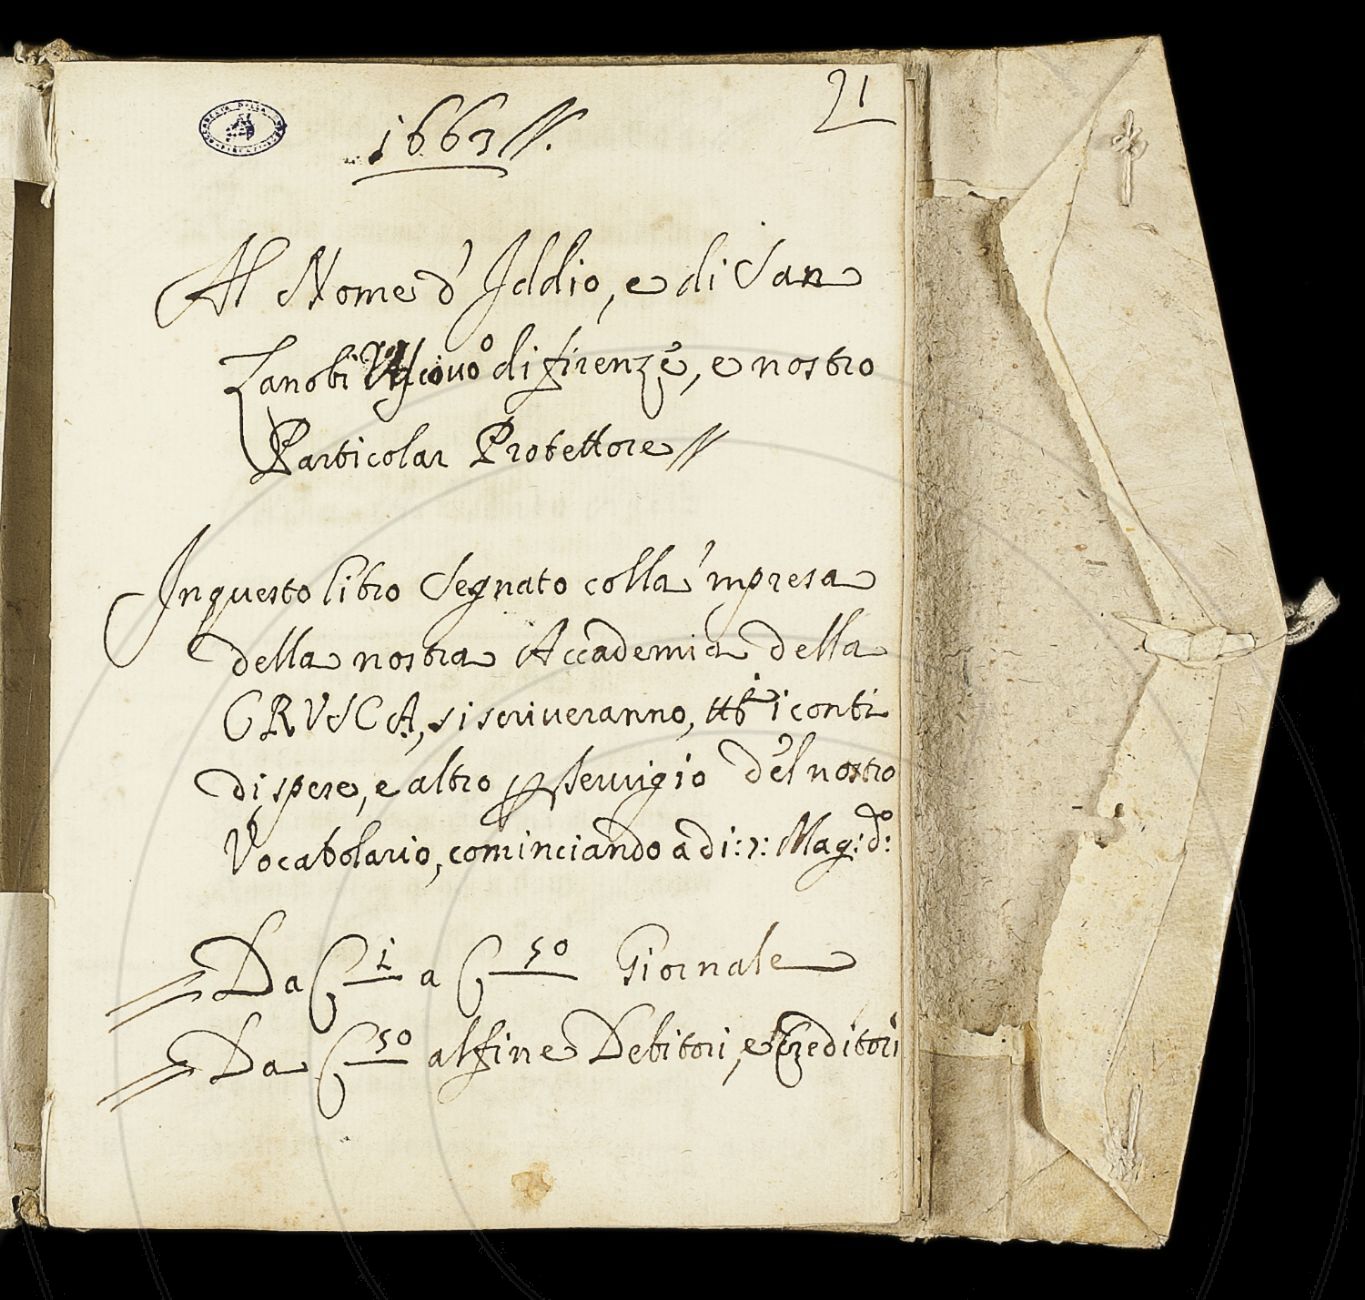 21
1663 //.
Al Nome d'Iddio, e di San
Zanobi Vescovo di firenze, e nostro
Particolar Protettore //
In questo libro Segnato colla 'mpresa
della nostra Accademia della
CRVSCA, si scriveranno, tti i conti
di spese, e altro p servigio del nostro
Vocabolario, cominciando a di: 7: Mag: do:
Da C 1 a C 50 Giornale
Da C 50 alfine Debitori, e Creditori